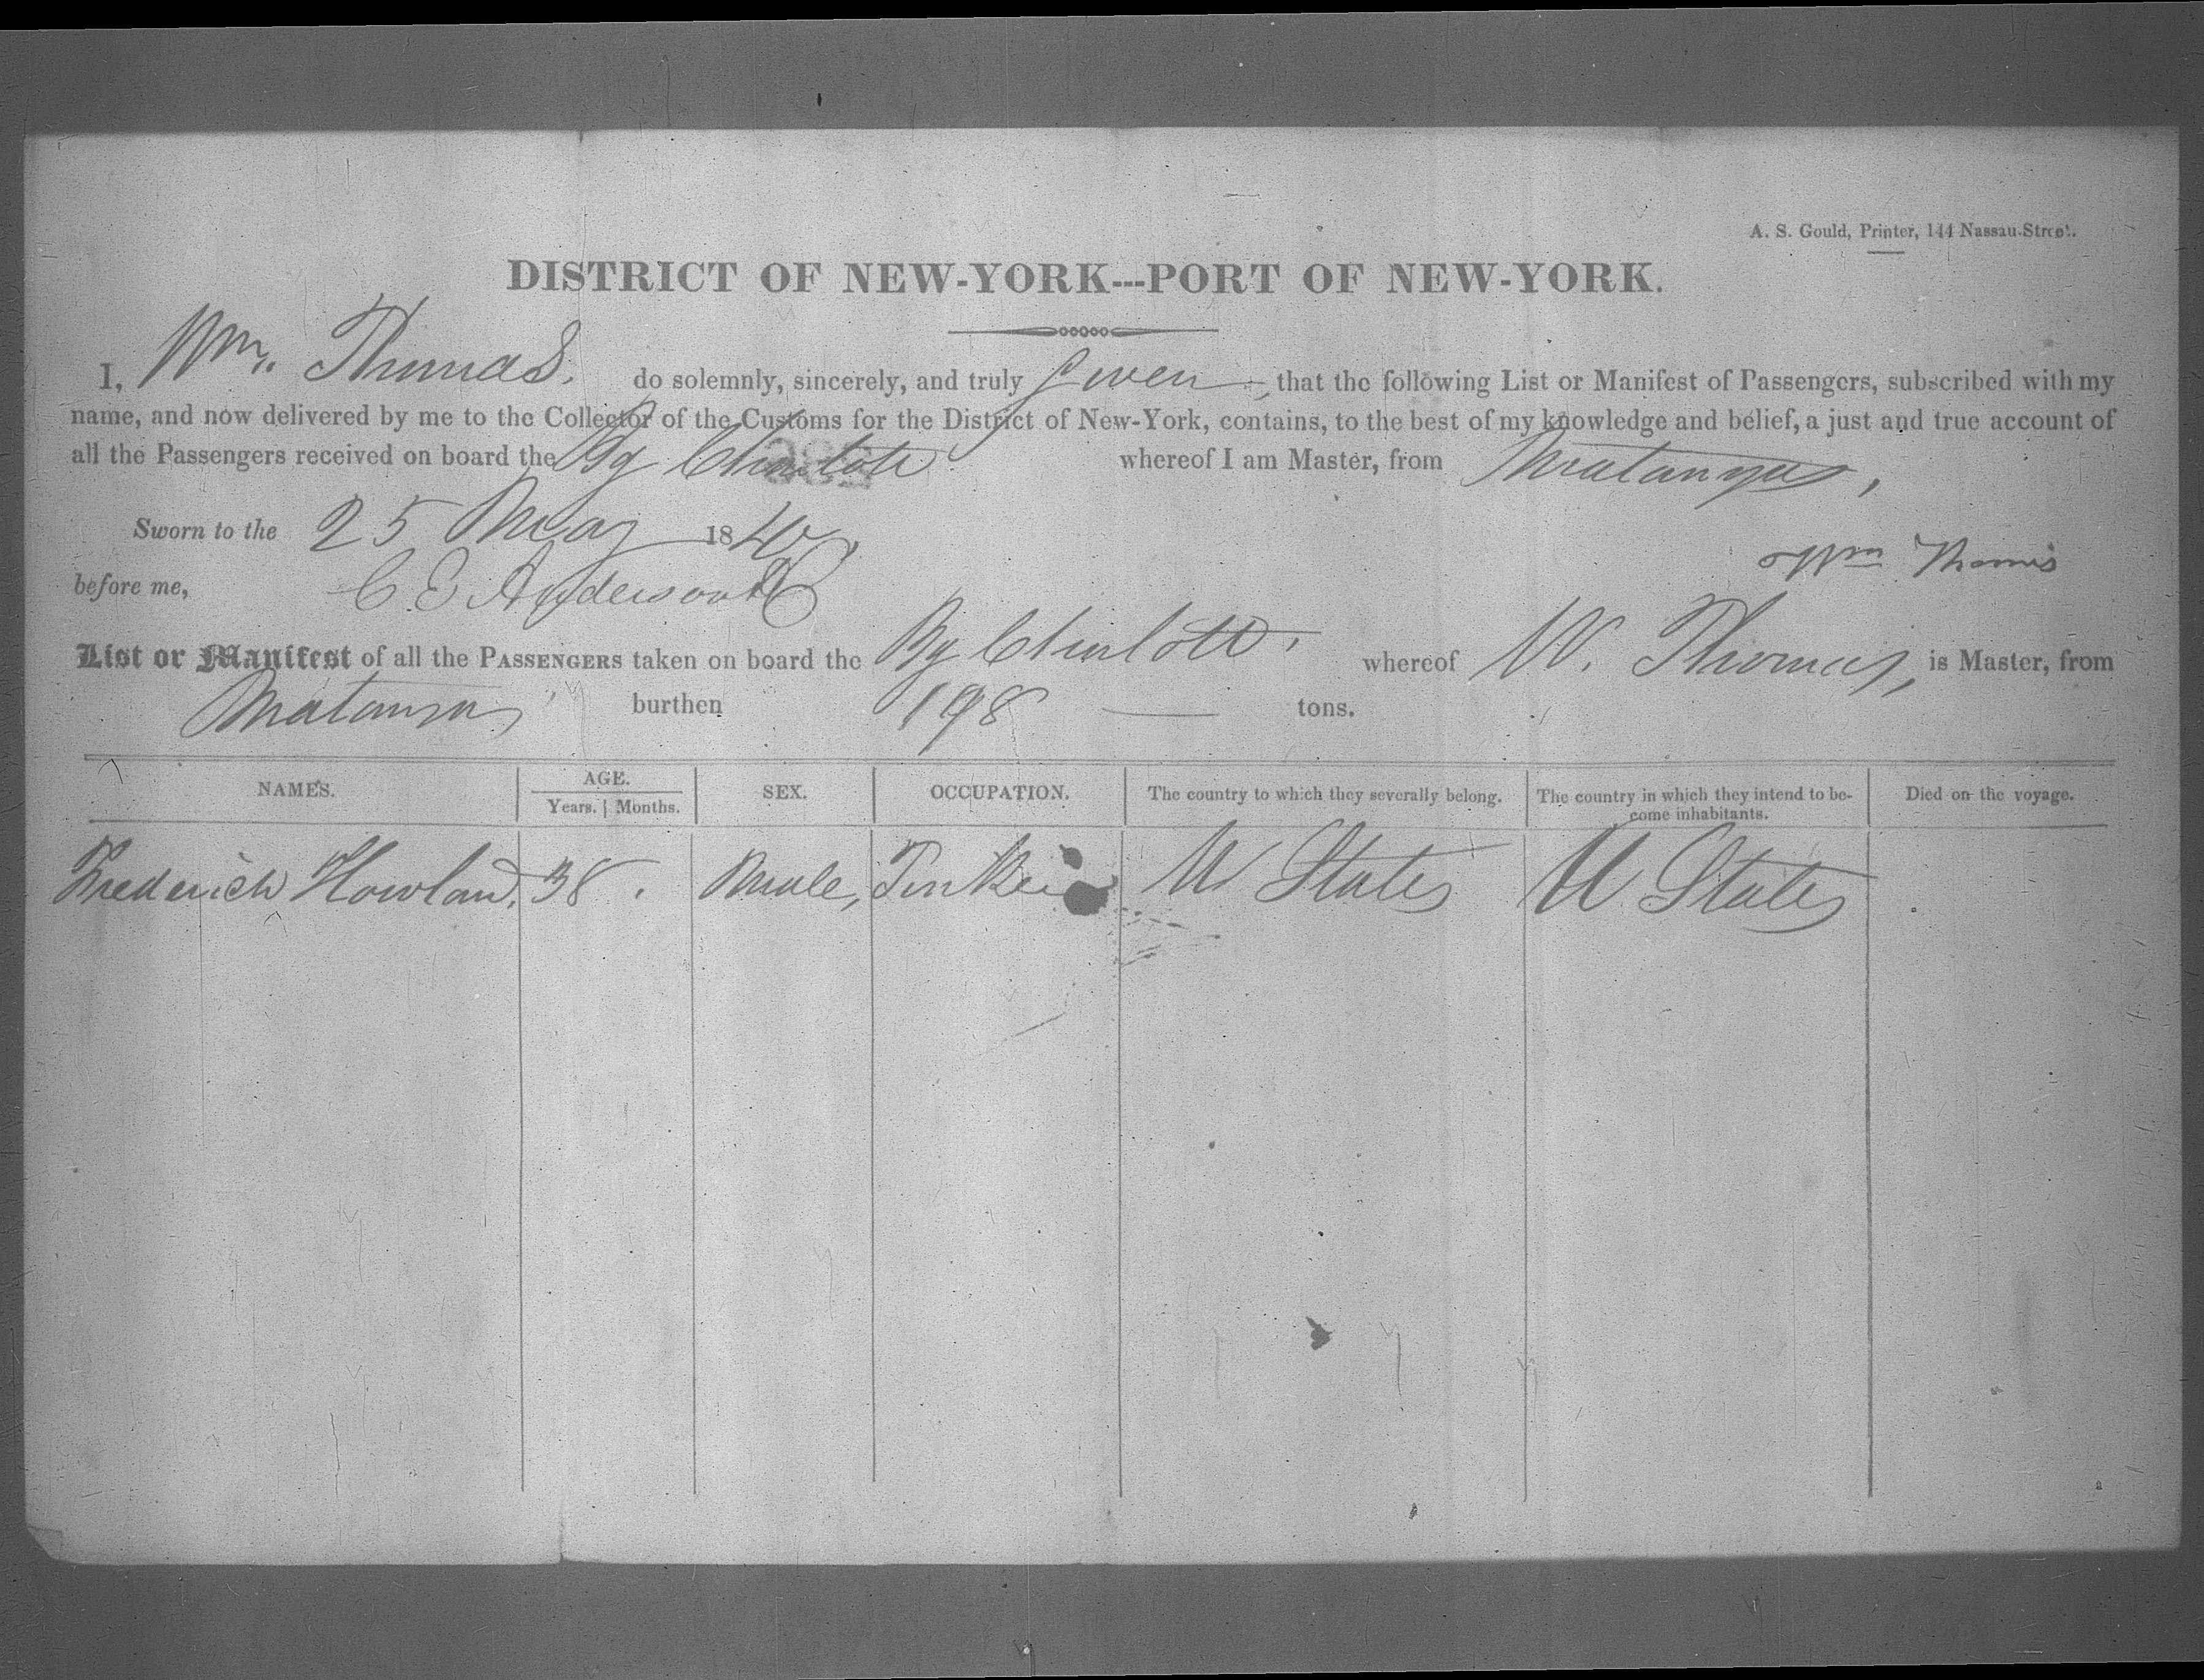 A. S. Gould, Printer, 144 Nassau-Street.
DISTRICT OF NEW-YORK---PORT OF NEW-YORK.
I, Wm. Thomas, do solemnly, sincerely, and truly swear, that the following List or Manifest of Passengers, subscribed with my
name, and now delivered by me to the Collector of the Customs for the District of New-York, contains, to the best of my knowledge and belief, a just and true account of
all the Passengers received on board the Bg Charlotte whereof I am Master, from Matanzas,
Sworn to the 25 May 1840,
Wm Thomas
before me, C E Anderson DC
List or Manifest of all the PASSENGERS taken on board the Bg Charlotte, whereof W. Thomas, is Master, from
Matanzas, burthen 198 tons.
NAMES. AGE. SEX. OCCUPATION. The country to which they severally belong. The country in which they intend to be- Died on the voyage.
Years. Months. come inhabitants.
Frederick Howland, 38. Male, U States U States